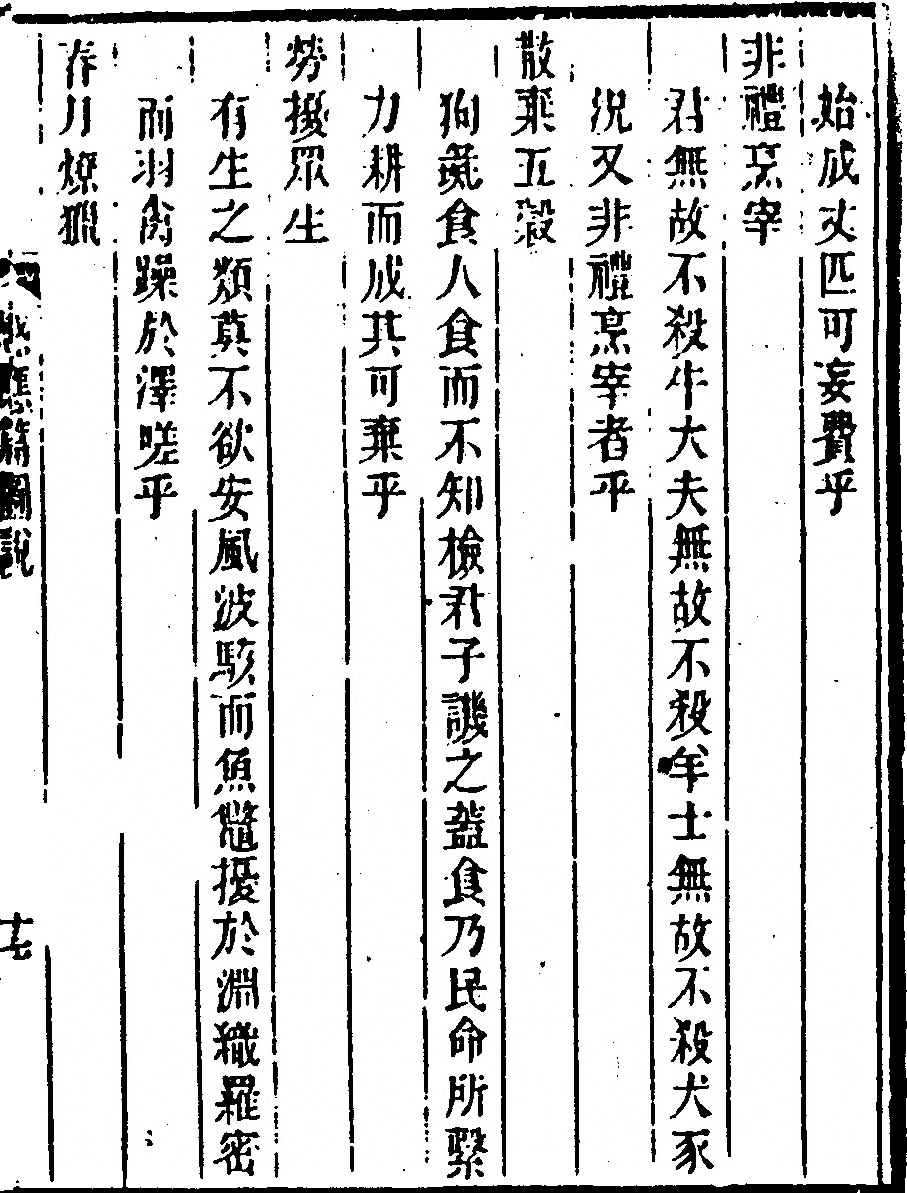 始成丈匹可妄費乎
非禮烹宰
君無故不殺牛大夫無故不殺羊士無故不殺犬豕
況又非禮烹宰者乎
散棄五穀
狗彘食人食而不知檢君子譏之蓋食乃民命所繫
力耕而成其可棄乎
勞擾眾生
有生之類莫不欲安風波駭而魚鼈擾於淵織羅密
而羽禽躁於澤嗟乎
春月燎獵
感應篇圖說
十七